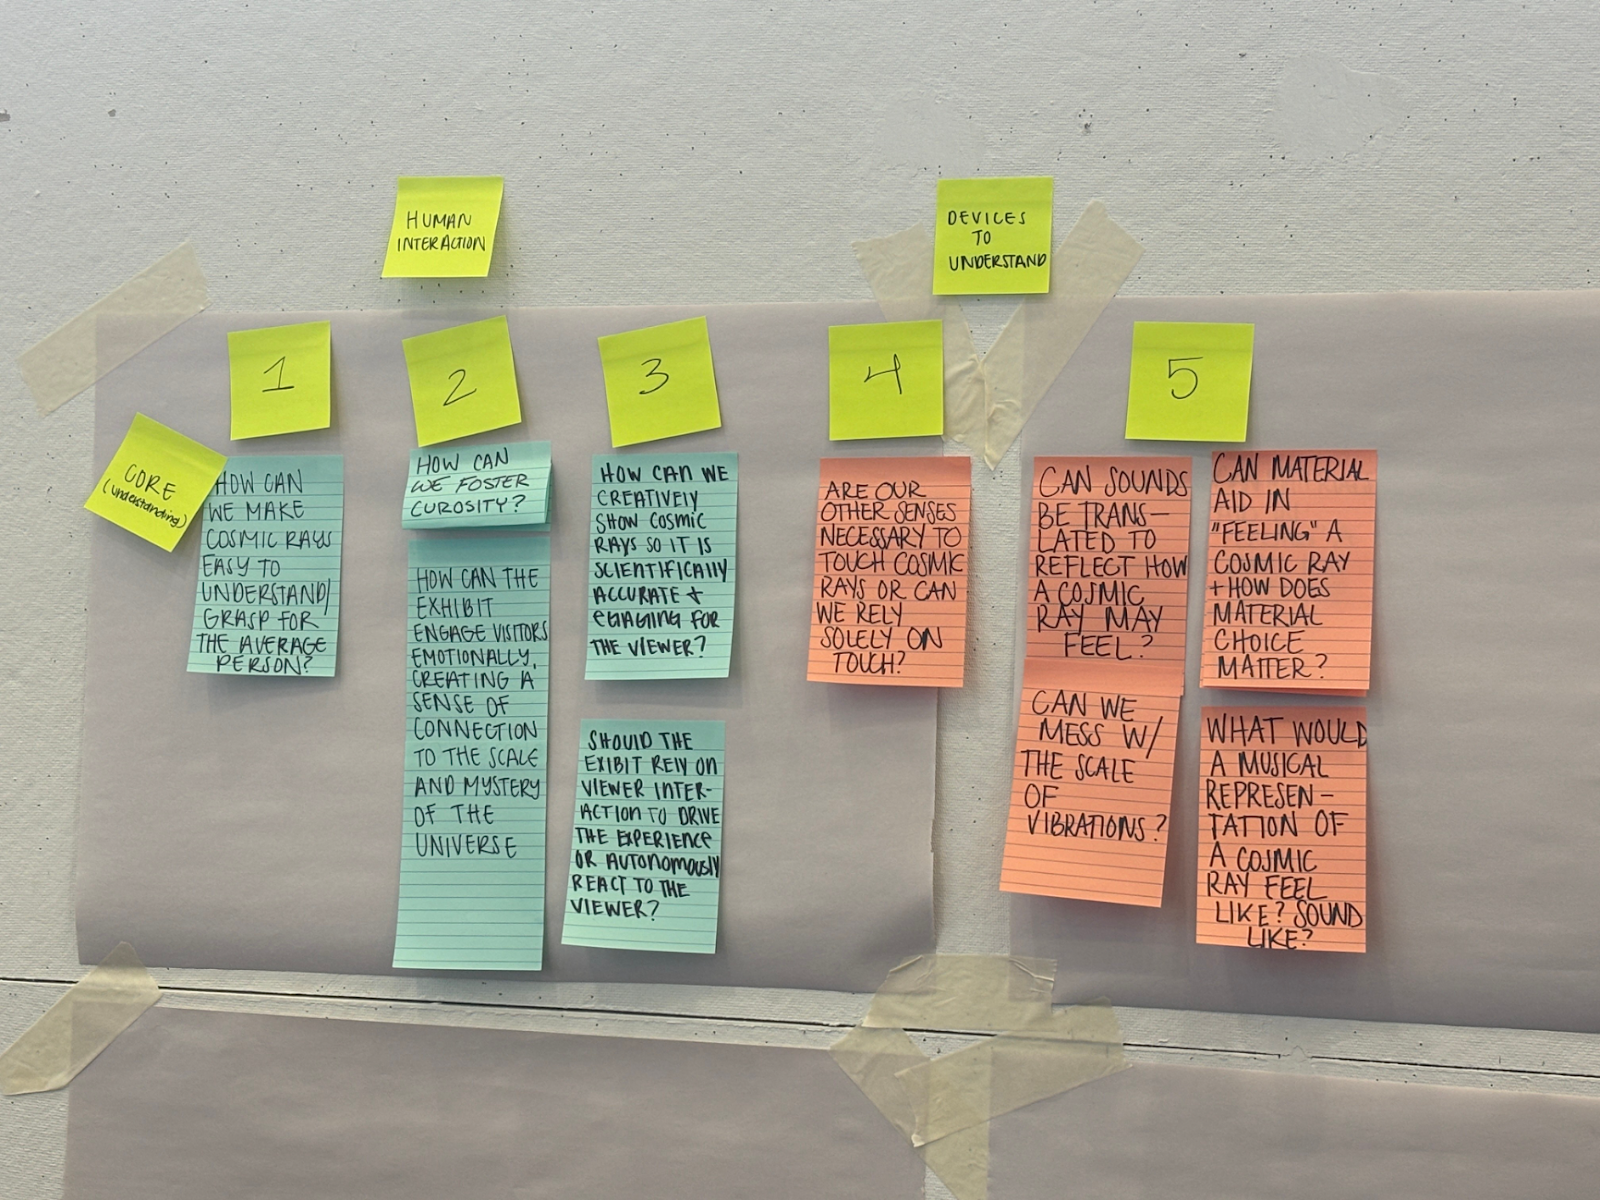 HUMAN
INTERACTION
DEVICES
TO
UNDERSTAND
1
2
3
4
5
CORE
(understanding)
HOW CAN
WE MAKE
COSMIC RAYS
EASY TO
UNDERSTAND/
GRASP FOR
THE AVERAGE
PERSON?
HOW CAN
WE FOSTER
CUROSITY?
HOW CAN THE
EXHIBIT
ENGAGE VISITORS
EMOTIONALLY,
CREATING A
SENSE OF
CONNECTION
TO THE SCALE
AND MYSTERY
OF THE
UNIVERSE
HOW CAN WE
CREATIVELY
SHOW COSMIC
RAYS SO IT IS
SCIENTIFICALLY
ACCURATE +
EGAGING FOR
THE VIEWER?
SHOULD THE
EXIBIT RELY ON
VIEWER INTER-
ACTION TO DRIVE
THE EXPERIENCE
OR AUTONOMOUSLY
REACT TO THE
VIEWER?
ARE OUR
OTHER SENSES
NECESSARY TO
TOUCH COSMIC
RAYS OR CAN
WE RELY
SOLELY ON
TOUCH?
CAN SOUNDS
BE TRANS-
LATED TO
REFLECT HOW
A COSMIC
RAY MAY
FEEL?
CAN WE
MESS W/
THE SCALE
OF
VIBRATIONS?
CAN MATERIAL
AID IN
"FEELING" A
COSMIC RAY
+ HOW DOES
MATERIAL
CHOICE
MATTER?
WHAT WOULD
A MUSICAL
REPRESEN-
TATION OF
A COSMIC
RAY FEEL
LIKE? SOUND
LIKE?